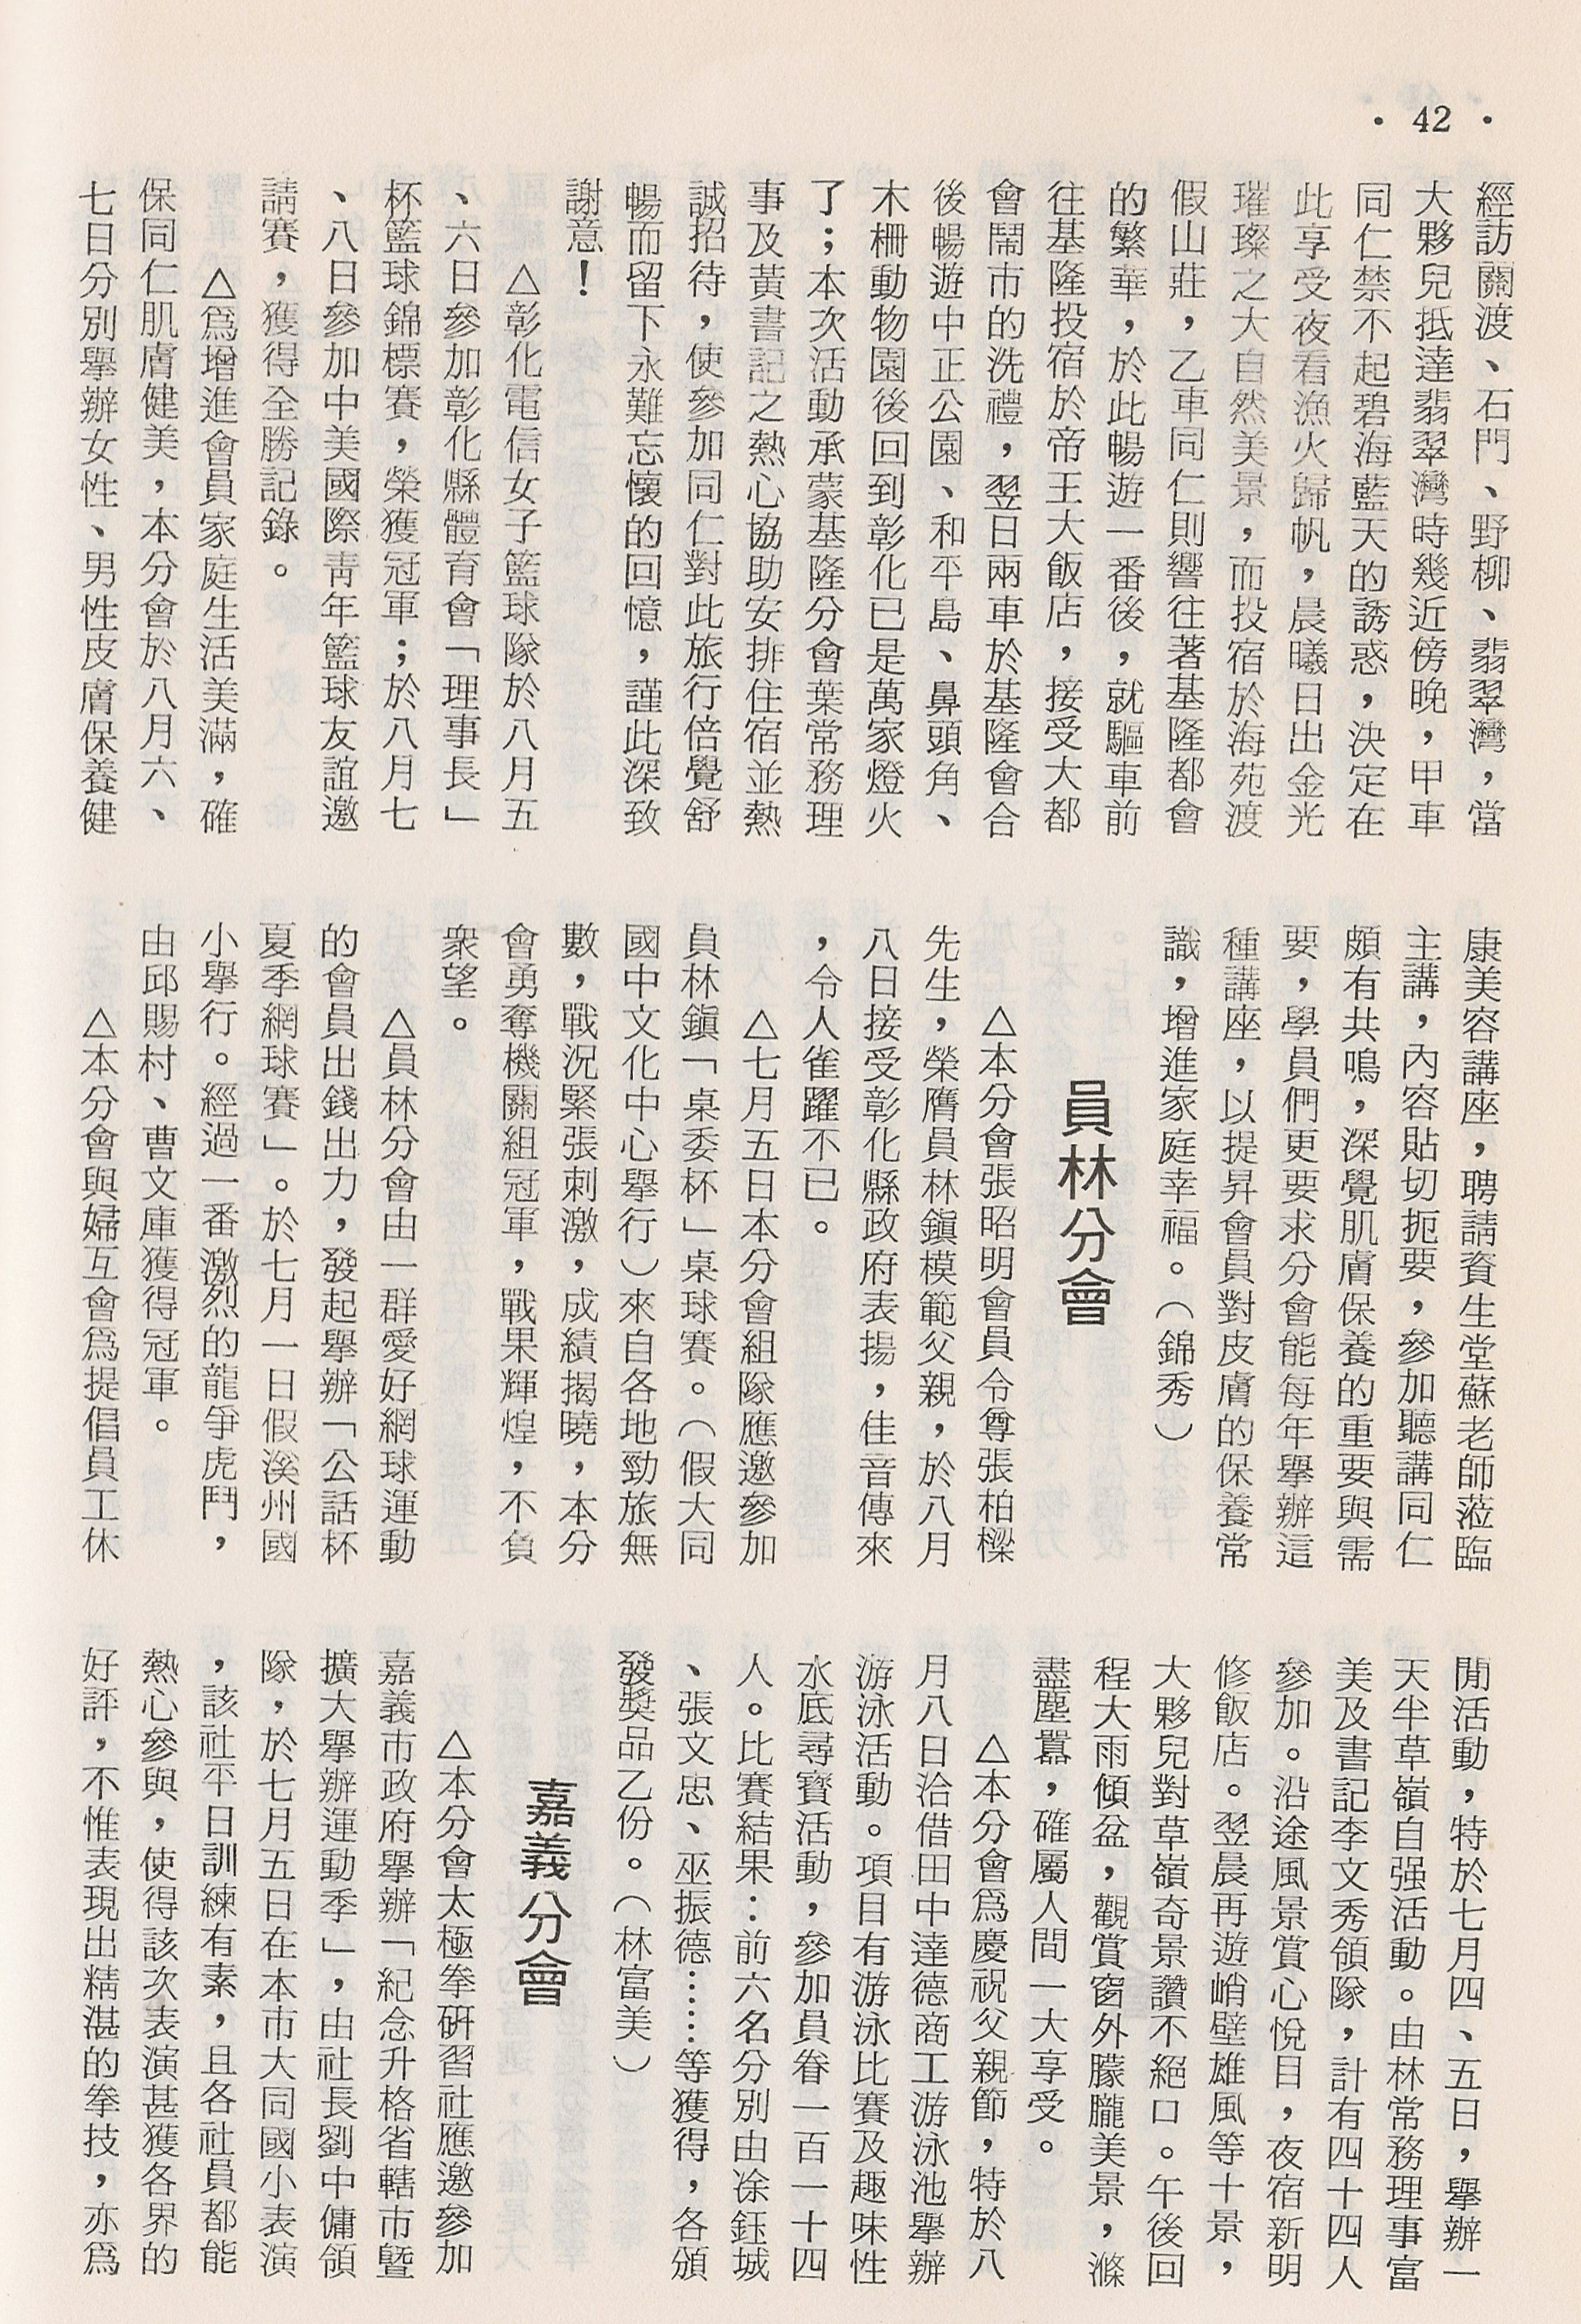 • 42 •
經訪關渡、石門、野柳、翡翠灣，當
大夥兒抵達翡翠灣時幾近傍晚，甲車
同仁禁不起碧海藍天的誘惑，決定在
此享受夜看漁火歸帆，晨曦日出金光
璀璨之大自然美景，而投宿於海苑渡
假山莊，乙車同仁則響往著基隆都會
的繁華，於此暢遊一番後，就驅車前
往基隆投宿於帝王大飯店，接受大都
會鬧市的洗禮，翌日兩車於基隆會合
後暢遊中正公園、和平島、鼻頭角、
木柵動物園後回到彰化已是萬家燈火
了；本次活動承蒙基隆分會葉常務理
事及黃書記之熱心協助安排住宿並熱
誠招待，使參加同仁對此旅行倍覺舒
暢而留下永難忘懷的回憶，謹此深致
謝意！
△彰化電信女子籃球隊於八月五
、六日參加彰化縣體育會「理事長」
杯籃球錦標賽，榮獲冠軍；於八月七
、八日參加中美國際靑年籃球友誼邀
請賽，獲得全勝記錄。
△爲增進會員家庭生活美滿，確
保同仁肌膚健美，本分會於八月六、
七日分別舉辦女性、男性皮膚保養健
康美容講座，聘請資生堂蘇老師蒞臨
主講，內容貼切扼要，參加聽講同仁
頗有共鳴，深覺肌膚保養的重要與需
要，學員們更要求分會能每年舉辦這
種講座，以提昇會員對皮膚的保養常
識，增進家庭幸福。（錦秀）
員林分會
△本分會張昭明會員令尊張柏樑
先生，榮膺員林鎭模範父親，於八月
八日接受彰化縣政府表揚，佳音傳來
，令人雀躍不已。
△七月五日本分會組隊應邀參加
員林鎭「桌委杯」桌球賽。（假大同
國中文化中心舉行）來自各地勁旅無
數，戰況緊張刺激，成績揭曉，本分
會勇奪機關組冠軍，戰果輝煌，不負
衆望。
△員林分會由一群愛好網球運動
的會員出錢出力，發起舉辦「公話杯
夏季網球賽」。於七月一日假溪州國
小舉行。經過一番激烈的龍爭虎鬥，
由邱賜村、曹文庫獲得冠軍。
△本分會與婦互會爲提倡員工休
閒活動，特於七月四、五日，舉辦一
天半草嶺自强活動。由林常務理事富
美及書記李文秀領隊，計有四十四人
參加。沿途風景賞心悅目，夜宿新明
修飯店。翌晨再遊峭壁雄風等十景，
大夥兒對草嶺奇景讚不絕口。午後回
程大雨傾盆，觀賞窗外朦朧美景，滌
盡塵囂，確屬人間一大享受。
△本分會爲慶祝父親節，特於八
月八日洽借田中達德商工游泳池舉辦
游泳活動。項目有游泳比賽及趣味性
水底尋寶活動，參加員眷一百一十四
人。比賽結果：前六名分別由凃鈺城
、張文忠、巫振德……等獲得，各頒
發獎品乙份。（林富美）
嘉義分會
△本分會太極拳硏習社應邀參加
嘉義市政府舉辦「紀念升格省轄市暨
擴大舉辦運動季」，由社長劉中傭領
隊，於七月五日在本市大同國小表演
，該社平日訓練有素，且各社員都能
熱心參與，使得該次表演甚獲各界的
好評，不惟表現出精湛的拳技，亦爲